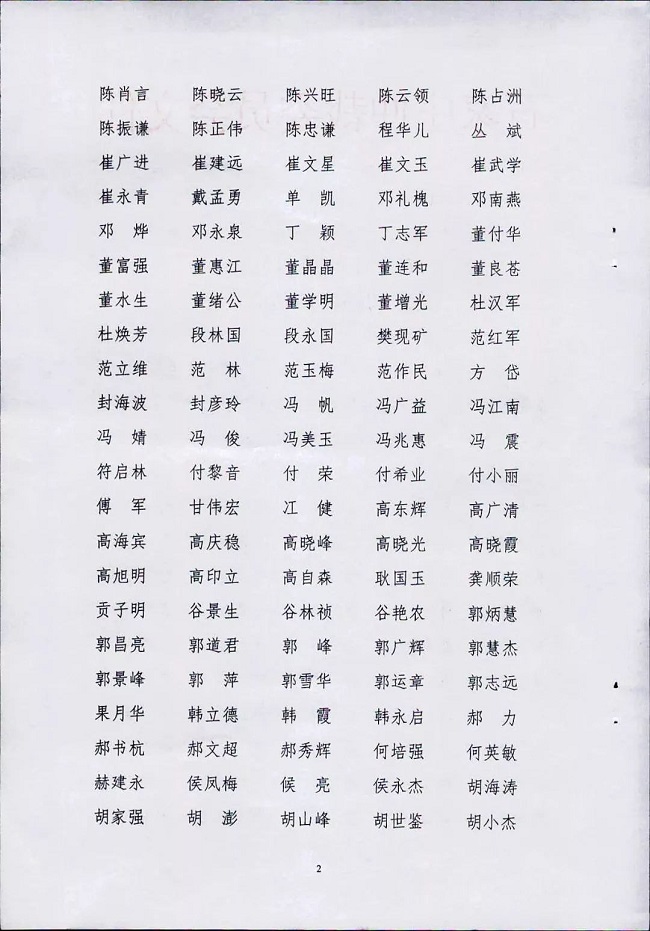 陈肖言 陈晓云 陈兴旺 陈云领 陈占洲
陈振谦 陈正伟 陈忠谦 程华儿 丛 斌
崔广进 崔建远 崔文星 崔文玉 崔武学
崔永青 戴孟勇 单 凯 邓礼槐 邓南燕
邓 烨 邓永泉 丁 颖 丁志军 董付华
董富强 董惠江 董晶晶 董连和 董良苍
董水生 董绪公 董学明 董增光 杜汉军
杜焕芳 段林国 段永国 樊现矿 范红军
范立维 范 林 范玉梅 范作民 方 岱
封海波 封彦玲 冯 帆 冯广益 冯江南
冯 婧 冯 俊 冯美玉 冯兆惠 冯 震
符启林 付黎音 付 荣 付希业 付小丽
傅 军 甘伟宏 冮 健 高东辉 高广清
高海宾 高庆稳 高晓峰 高晓光 高晓霞
高旭明 高印立 高自森 耿国玉 龚顺荣
贡子明 谷景生 谷林祯 谷艳农 郭炳慧
郭昌亮 郭道君 郭 峰 郭广辉 郭慧杰
郭景峰 郭 萍 郭雪华 郭运章 郭志远
果月华 韩立德 韩 霞 韩永启 郝 力
郝书杭 郝文超 郝秀辉 何培强 何英敏
赫建永 侯凤梅 侯 亮 侯永杰 胡海涛
胡家强 胡 澎 胡山峰 胡世鉴 胡小杰
2